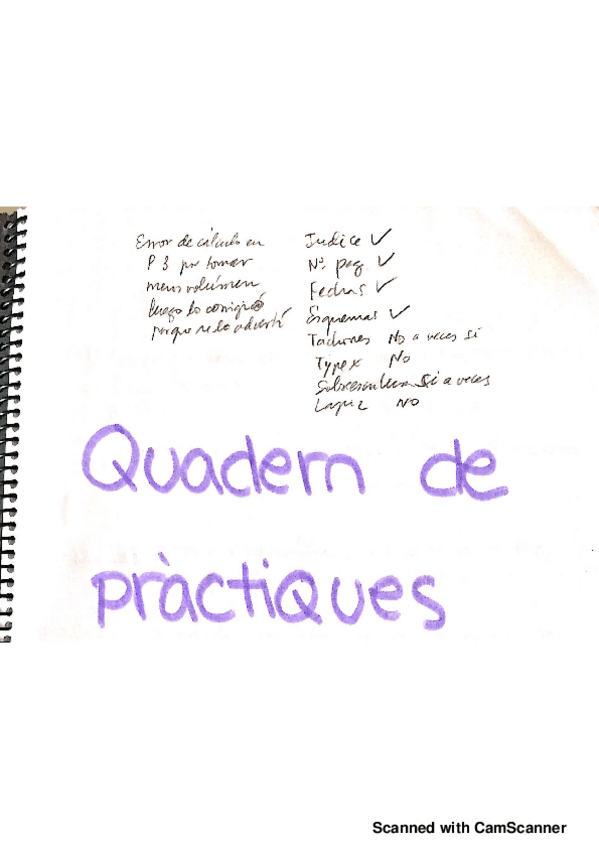 Error de cálculo en
P 3 por tomar
menos volúmen
luego lo corrigió
porque se lo advertí
Indice ✓
Nº pag ✓
Fechas ✓
Esquemas ✓
Tachones No a veces si
Typex No
Sobreescritura Si a veces
Lapiz NO
Quadern de
pràctiques
Scanned with CamScanner